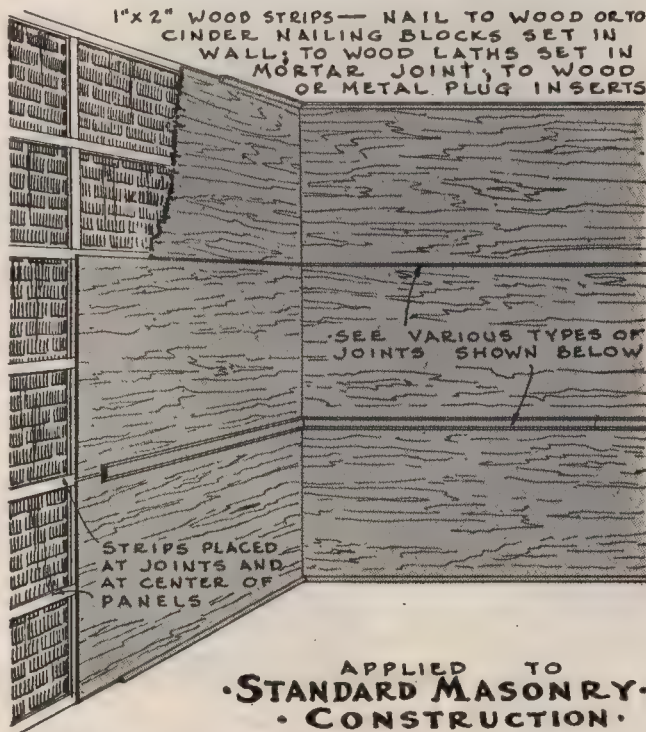 1"x 2" WOOD STRIPS — NAIL TO WOOD OR TO
CINDER NAILING BLOCKS SET IN
WALL; TO WOOD LATHS SET IN
MORTAR JOINT; TO WOOD
OR METAL PLUG INSERTS
SEE VARIOUS TYPES OF
JOINTS SHOWN BELOW
STRIPS PLACED
AT JOINTS AND
AT CENTER OF
PANELS
APPLIED TO
·STANDARD MASONRY·
·CONSTRUCTION·